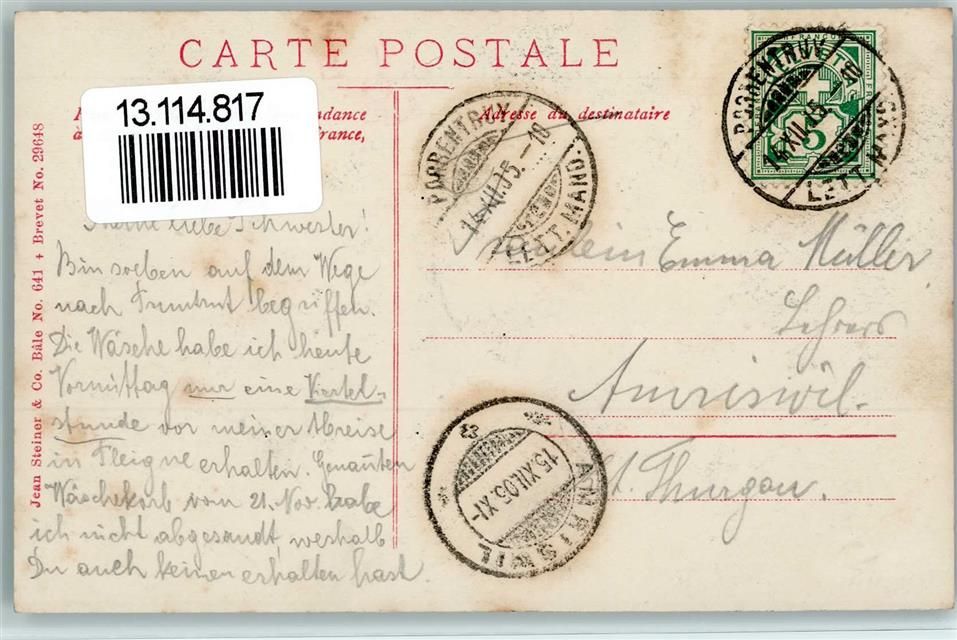 CARTE POSTALE
13.114.817
dance
à
france,
Adresse du destinataire
Jean Steiner & Co. Bâle No. 641 + Brevet No. 29648
FRANCO
5
PORRENTRUY
14.XII.05.-10
LETT. MAND
PORRENTRUY
14.XII.05.-10
LETT. MAND
Meine liebe Schwester!
Bin soeben auf dem Wege
nach Pruntrut begriffen.
Die Wäsche habe ich heute
Vormittag nur eine Viertel-
stunde vor meiner Abreise
in Pleigne erhalten. Genannten
Wäschekorb vom 21. Nov. habe
ich nicht abgesandt, weshalb
Du auch keinen erhalten hast.
Fräulein Emma Müller
Lehrers
Amriswil.
Kt. Thurgau.
AMRISWIL
15.XII.05.XI-